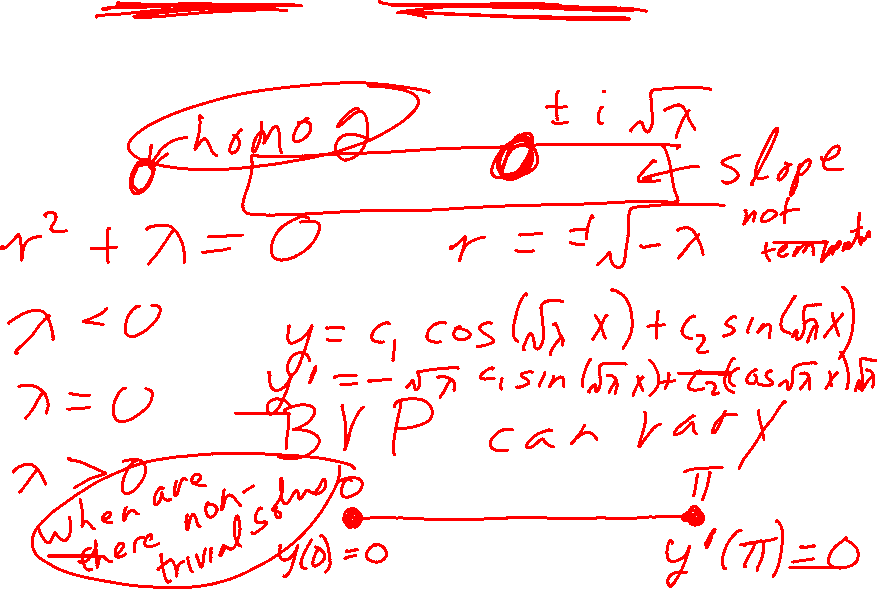 homo 2 ± i √λ
slope
not
r² + λ = 0 r = ±√-λ
λ < 0 y = c₁ cos(√λ x) + c₂ sin(√λ x)
λ = 0 y' = -√λ c₁ sin(√λ x) + c₂(cos √λ x)√λ
BVP can vary
λ > 0
when are there non-trivial solns
0 π
y(0) = 0 y'(π) = 0